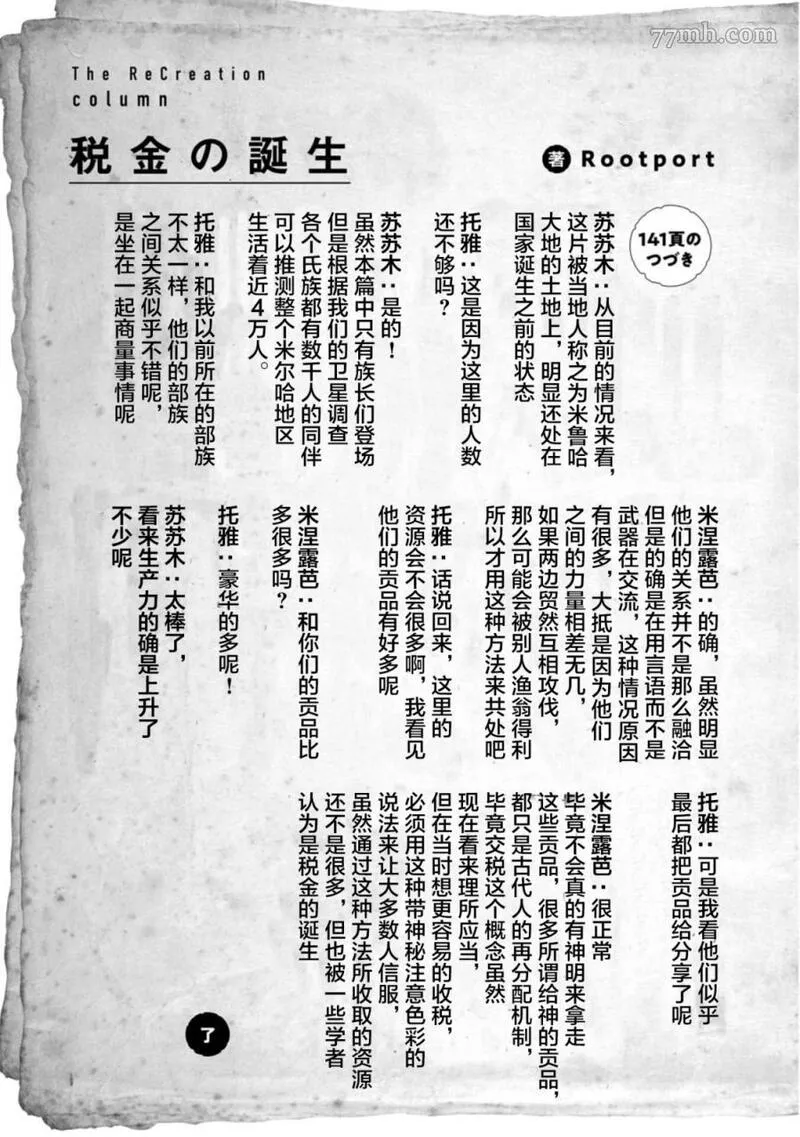 77mh.com
The ReCreation
column
税金の誕生
著 Rootport
141頁の
つづき
苏苏木：从目前的情况来看，
这片被当地人称之为米鲁哈
大地的土地上，明显还处在
国家诞生之前的状态
托雅：这是因为这里的人数
还不够吗？
苏苏木：是的！
虽然本篇中只有族长们登场
但是根据我们的卫星调查
各个氏族都有数千人的同伴
可以推测整个米尔哈地区
生活着近4万人。
托雅：和我以前所在的部族
不太一样，他们的部族
之间关系似乎不错呢，
是坐在一起商量事情呢
米涅露芭：的确，虽然明显
他们的关系并不是那么融洽
但是的确是在用言语而不是
武器在交流，这种情况原因
有很多，大抵是因为他们
之间的力量相差无几，
如果两边贸然互相攻伐，
那么可能会被别人渔翁得利
所以才用这种方法来共处吧
托雅：话说回来，这里的
资源会不会很多啊，我看见
他们的贡品有好多呢
米涅露芭：和你们的贡品比
多很多吗？
托雅：豪华的多呢！
苏苏木：太棒了，
看来生产力的确是上升了
不少呢
托雅：可是我看他们似乎
最后都把贡品给分享了呢
米涅露芭：很正常
毕竟不会真的有神明来拿走
这些贡品，很多所谓给神的贡品，
都只是古代人的再分配机制，
毕竟交税这个概念虽然
现在看来理所应当，
但在当时想更容易的收税，
必须用这种带神秘注意色彩的
说法来让大多数人信服，
虽然通过这种方法所收取的资源
还不是很多，但也被一些学者
认为是税金的诞生
了